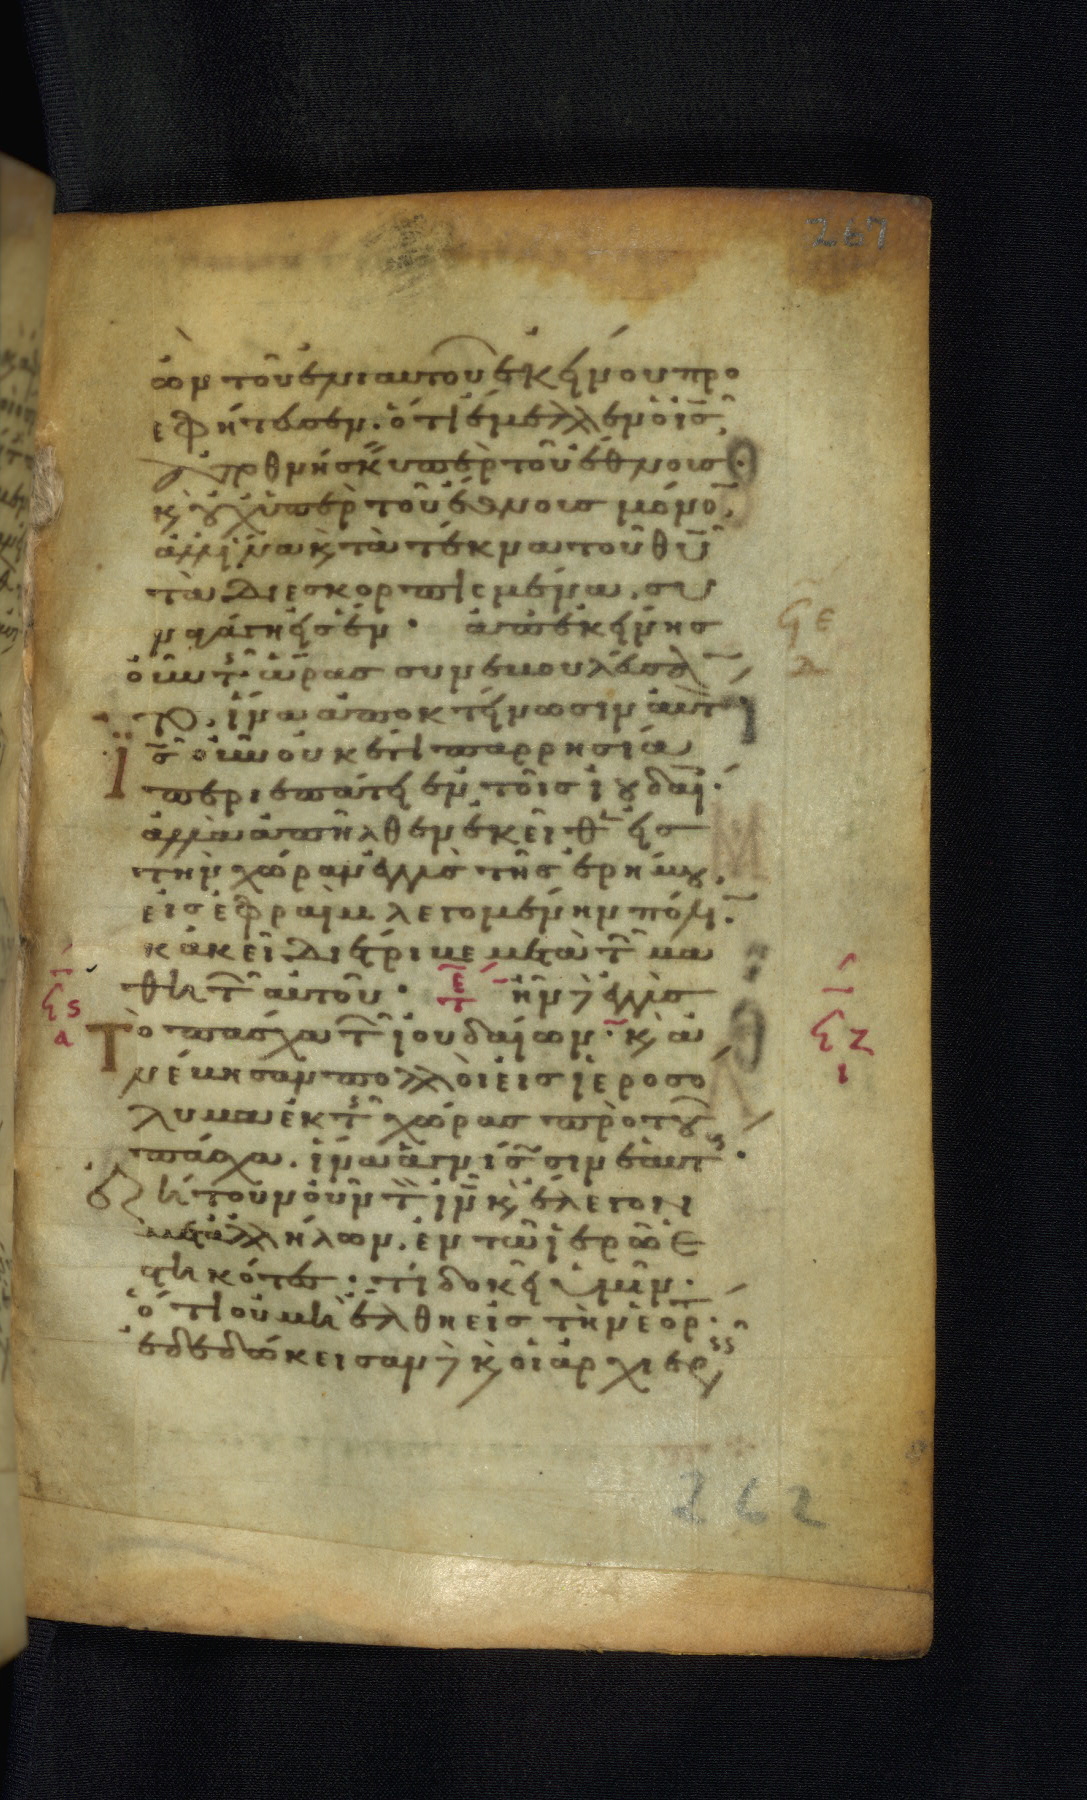 267
ὼν τοῦ ἐνιαυτοῦ ἐκείνου προ
εφήτευσεν. ὅτι ἔμελλεν ὁ ις
ἀποθνήσκειν ὑπὲρ τοῦ ἔθνους.
κ οὐχ ὑπὲρ τοῦ ἔθνους μόνον,
ἀλλ' ἵνα κ τὰ τέκνα τοῦ θυ
τὰ διεσκορπισμένα. συ
ναγάγη εἰς ἕν. ἀπ' ἐκείνης
οὖν τῆς ὥρας συνεβουλεύσαν
το. ἵνα ἀποκτείνωσιν αὐτόν
Ἰς οὖν οὐκέτι παρρησία
περιεπάτει ἐν τοῖς ἰουδαί.
ἀλλὰ ἀπῆλθεν ἐκεῖθεν εἰς
τὴν χώραν ἐγγὺς τῆς ἐρήμου,
εἰς ἐφραὶμ λεγομένην πόλιν.
κἀκεῖ διέτριβε μετὰ τῶν μα
θητῶν αὐτοῦ. ἦν δὲ ἐγγὺς
Τὸ πάσχα τῶν ἰουδαίων. κ ἀ
νέβησαν πολλοὶ εἰς ἱεροσό
λυμα ἐκ τῆς χώρας πρὸ τοῦ
πάσχα. ἵνα ἁγνίσωσιν ἑαυτούς.
ἐζήτουν οὖν τὸν ιν κ ἔλεγον
μετ' ἀλλήλων. ἐν τῶ ἱερῶ ἑ
στηκότες. τί δοκεῖ ὑμῖν.
ὅτι οὐ μὴ ἔλθη εἰς τὴν ἑορτ.
ἐδεδώκεισαν δὲ κ οἱ ἀρχιερεῖς
262